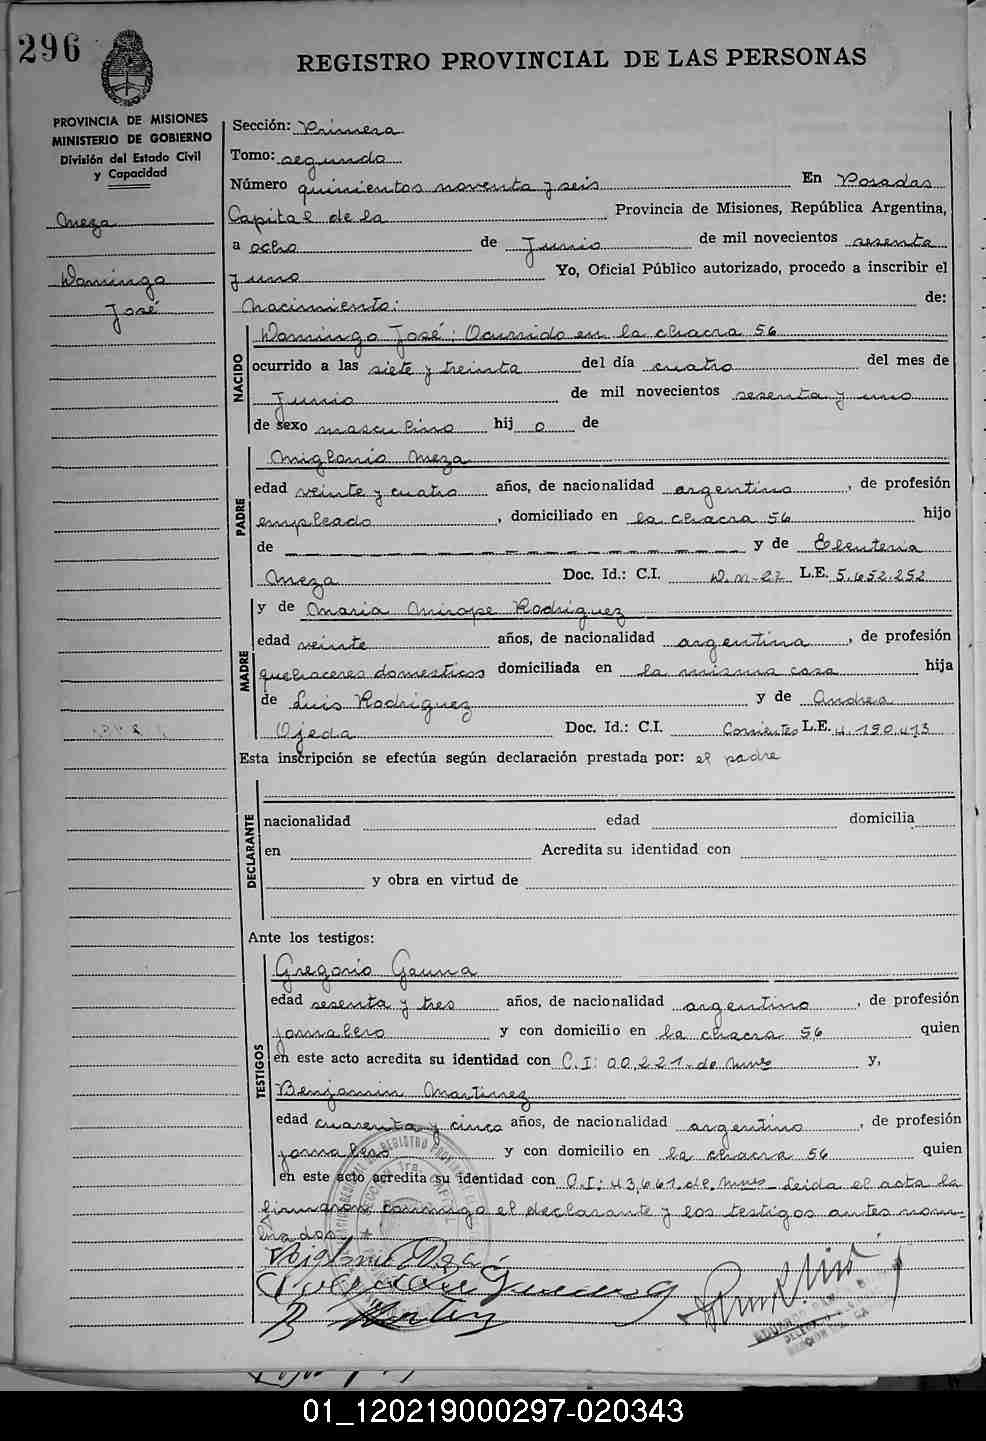 296
REGISTRO PROVINCIAL DE LAS PERSONAS
PROVINCIA DE MISIONES
MINISTERIO DE GOBIERNO
División del Estado Civil
y Capacidad
Meza
Domingo
José
Sección: Primera
Tomo: segundo
Número quinientos noventa y seis En Posadas
Capital de la Provincia de Misiones, República Argentina,
a ocho de Junio de mil novecientos sesenta
y uno Yo, Oficial Público autorizado, procedo a inscribir el
Nacimiento: de:
NACIDO
Domingo José: Ocurrido en la chacra 56
ocurrido a las siete y treinta del día cuatro del mes de
Junio de mil novecientos sesenta y uno
de sexo masculino hij o de
PADRE
Miglonio Meza
edad veinte y cuatro años, de nacionalidad argentino, de profesión
empleado, domiciliado en la chacra 56 hijo
de — — — y de Eleuteria
Meza Doc. Id.: C.I. D.M-27 L.E. 5.652.252
MADRE
y de Maria Mirope Rodriguez
edad veinte años, de nacionalidad argentina, de profesión
quehaceres domesticos domiciliada en la misma casa hija
de Luis Rodriguez y de Andrea
Ojeda Doc. Id.: C.I. Corrientes L.E. 4.190.473
Esta inscripción se efectúa según declaración prestada por: el padre
DECLARANTE
nacionalidad edad domicilia
en Acredita su identidad con
y obra en virtud de
Ante los testigos:
TESTIGOS
Gregorio Gauna
edad sesenta y tres años, de nacionalidad argentino, de profesión
jornalero y con domicilio en la chacra 56 quien
en este acto acredita su identidad con C.I: 00,221. de Mnes y,
Benjamin Martinez
edad cuarenta y cinco años, de nacionalidad argentino, de profesión
jornalero y con domicilio en la chacra 56 quien
en este acto acredita su identidad con C.I: 43,661. de Mnes Leida el acta la
firmaron conmigo el declarante y los testigos antes nom-
brados.
01_120219000297-020343